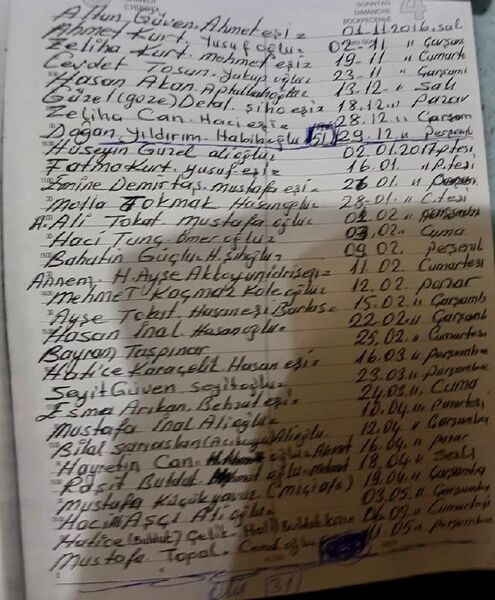 SONNTAG
DIMANCHE
Altun Güven. Ahmet eşi= 01-11-2016. salı
Ahmet Kurt. Yusuf oğlu= 02-11 " Çarşam
Zeliha Kurt. mehmet eşi= 19-11 " Cumarte
Cevdet Tosun. yakup oğlu= 23-11 " Çarşam
Hasan Akan. Aptullahoğlu= 13.12 " Salı
Güzel (göze) Detal. şiho eşi= 18.12 " Pazar
Zeliha Can. Haci eşi= 28.12 " Çarşam
Doğan Yıldırım. Habiboğlu 51 29.12. " Perşemb
Hüseyin Güzel alioğlu= 02 01.2017.P.tesi
Fatma Kurt. yusuf eşi= 16.01. " P.tesi
Emine Demirtaş. mustafa eşi= 26 01. "
Molla Tokmak Hasanoğlu= 28-01 " C.tesi
H. Ali Tokat Mustafa oğlu= 02.02 " perşembe
Haci Tunç. Ömer oğlu= 03.02 " Cuma
Bahattin Güçlü. H. 09 02. perşemb
Annem. H. Ayşe 11.02 Cumartesi
Mehmet Koçmaz Koleoğlu= 12.02. pazar
Ayşe Tokat Hasan eşi 15.02. " Çarşamb
Hasan İnal Hasanoğlu= 22.02 " Çarşamb
Bayram Taşpınar 25.02. " Cumartesi
Hatice Karaçelik Hasan eşi= 16.03 " Perşembe
Seyit Güven seyitoğlu= 23.03. " Perşembe
Esma Arıkan. Behzat eşi= 24.03. " Cuma
Mustafa İnal Alioğlu= 10.04 " Pazartesi
Bilal sarıaslan Alioğlu. 12.04 " Çarşamba
Hayrettin Can. oğlu= Ahmet 16.04. " Pazar
Raşit Bulduk oğlu= Mehmet 18.04. " Salı
Mustafa Küçükyavuz 19.04 " Çarşamba
Haci Aşçı Alioğlu= 03.05 " Çarşamba
Hatice (Bulduk) Çelik. Halil Bulduk 06.05. " Cumartesi
Mustafa Topal. oğlu 11.05 " Perşembe
31